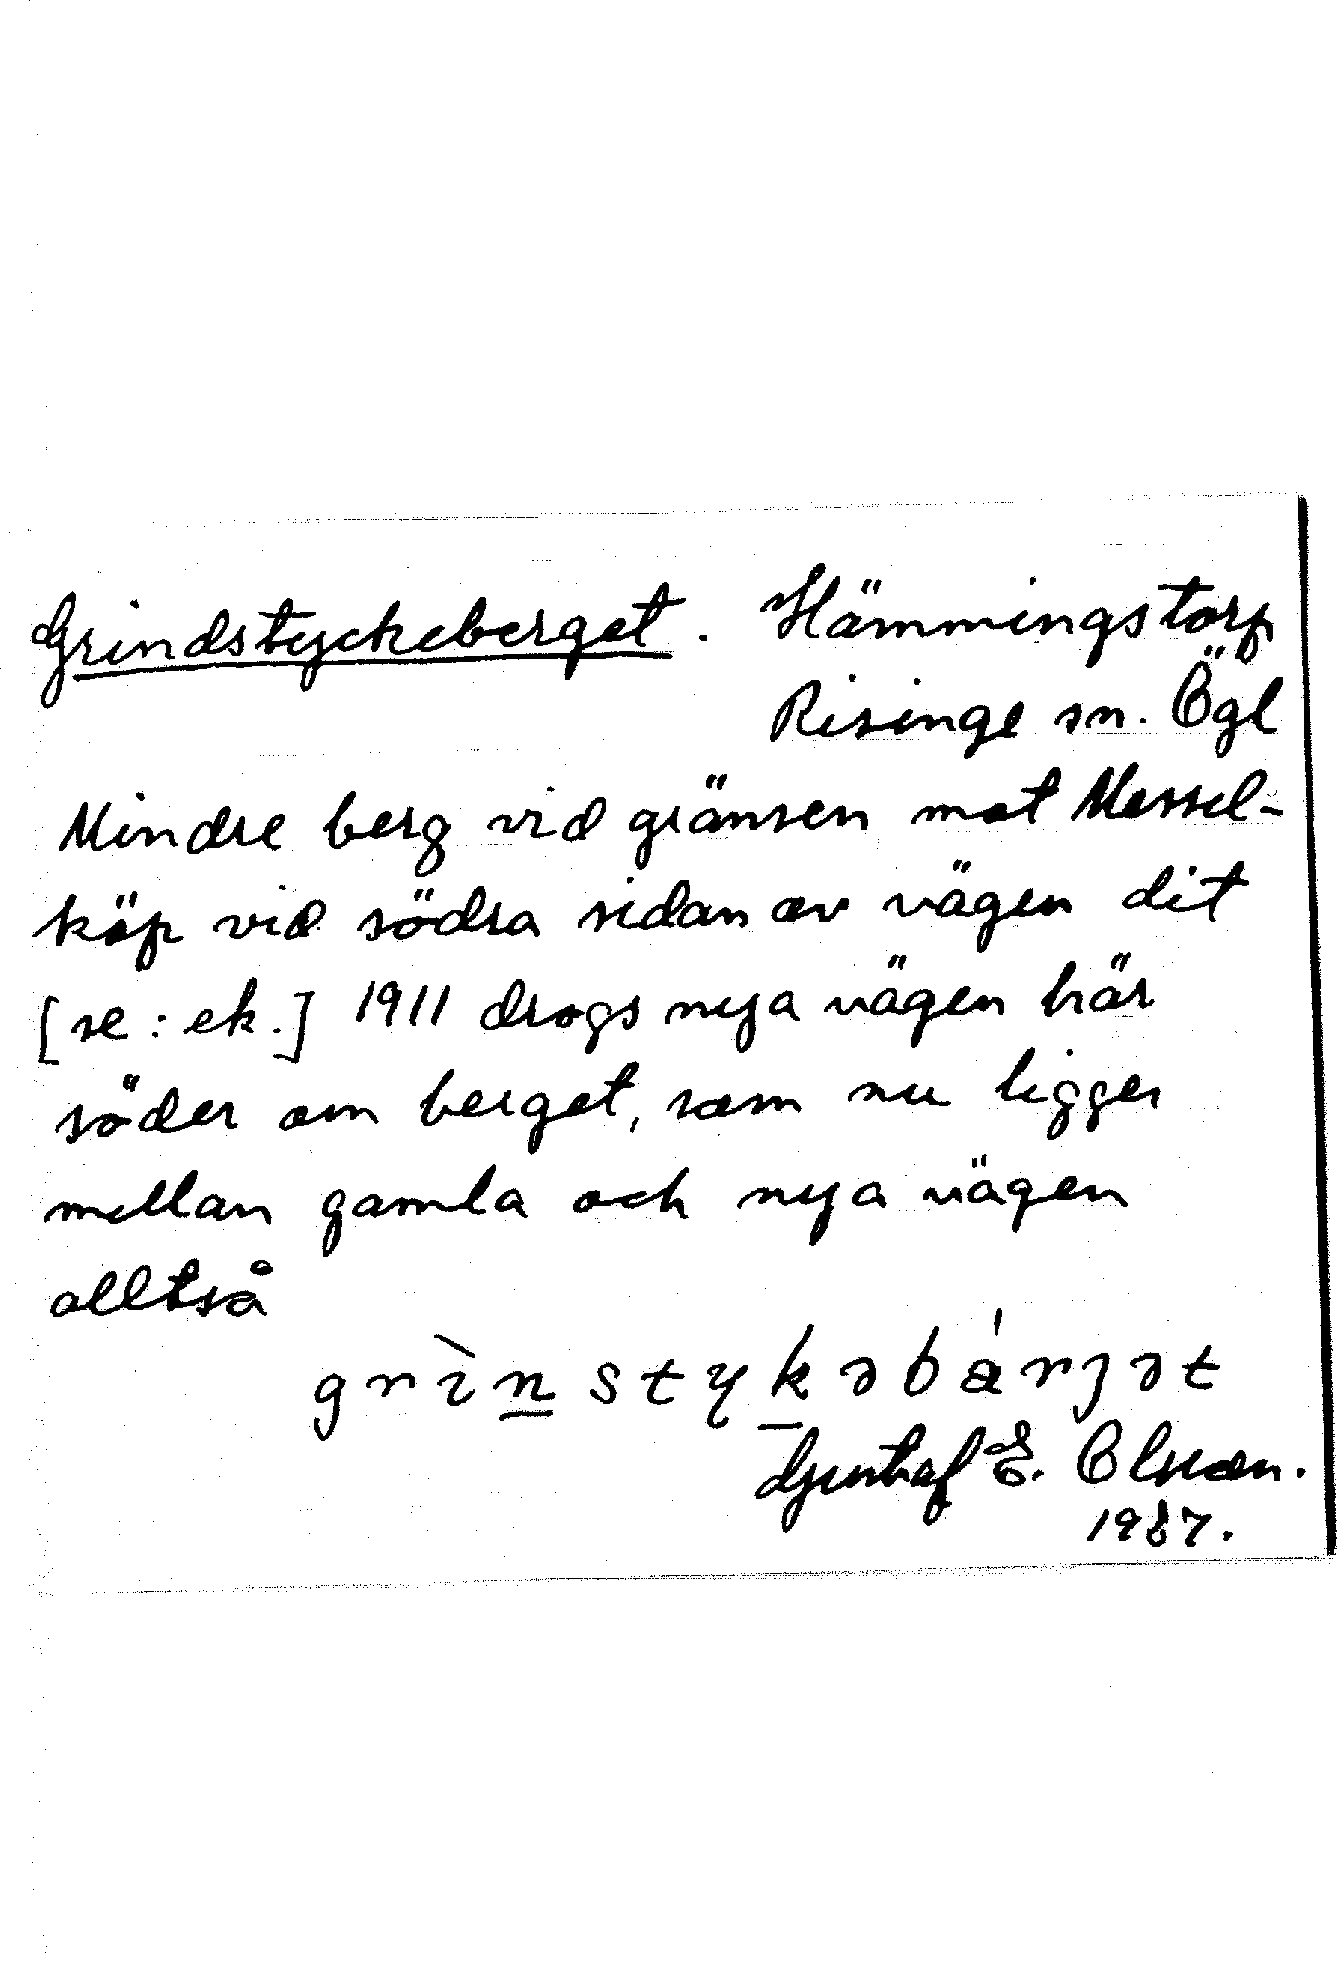 Grindstyckeberget. Hämmingstorp
Risinge sn. Ögl
Mindre berg vid gränsen mot Messel-
köp vid södra sidan av vägen dit
[se: ek.] 1911 drogs nya vägen här
söder om berget, som nu ligger
mellan gamla och nya vägen
alltså
grìn̲styk̲əbárȷət
Gustaf E. Olsson.
1987.